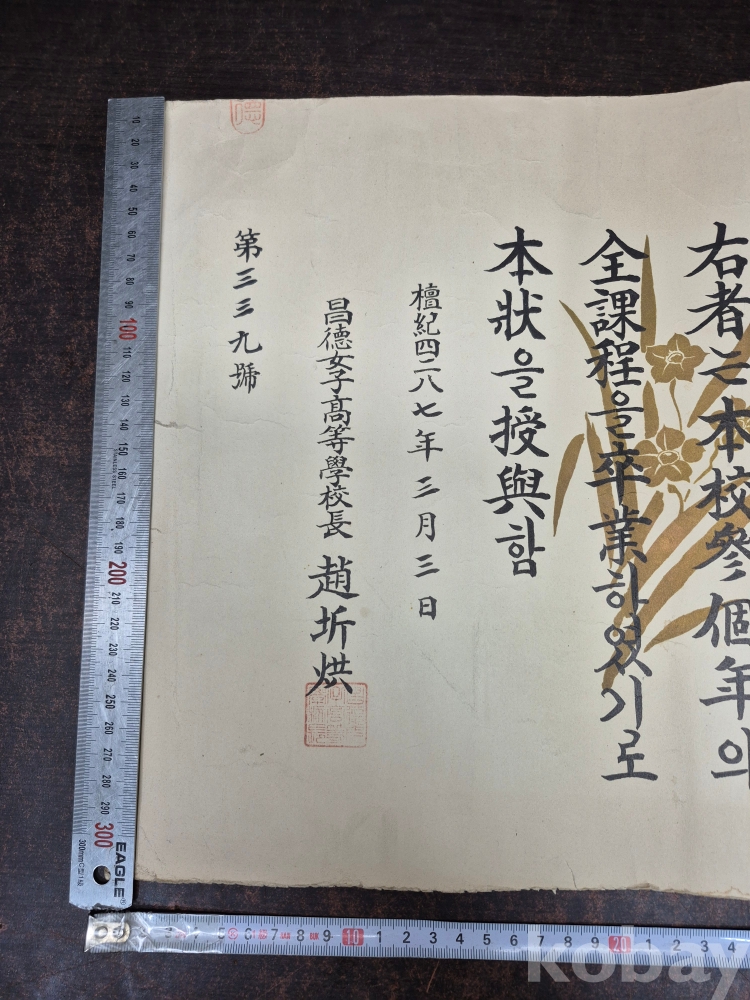 右者는本校參個年의
全課程을卒業하였기로
本狀을授與함
檀紀四二八七年三月三日
昌德女子高等學校長 趙圻烘
第三三九號
德
10 20 30 40 50 60 70 80 90 100 110 120 130 140 150 160 170 180 190 200 210 220 230 240 250 260 270 280 290 300
STAINLESS STEEL
EAGLE
5 6 7 8 9 10 1 2 3 4 5 6 7 8 9 20 1 2 3 4
kobay